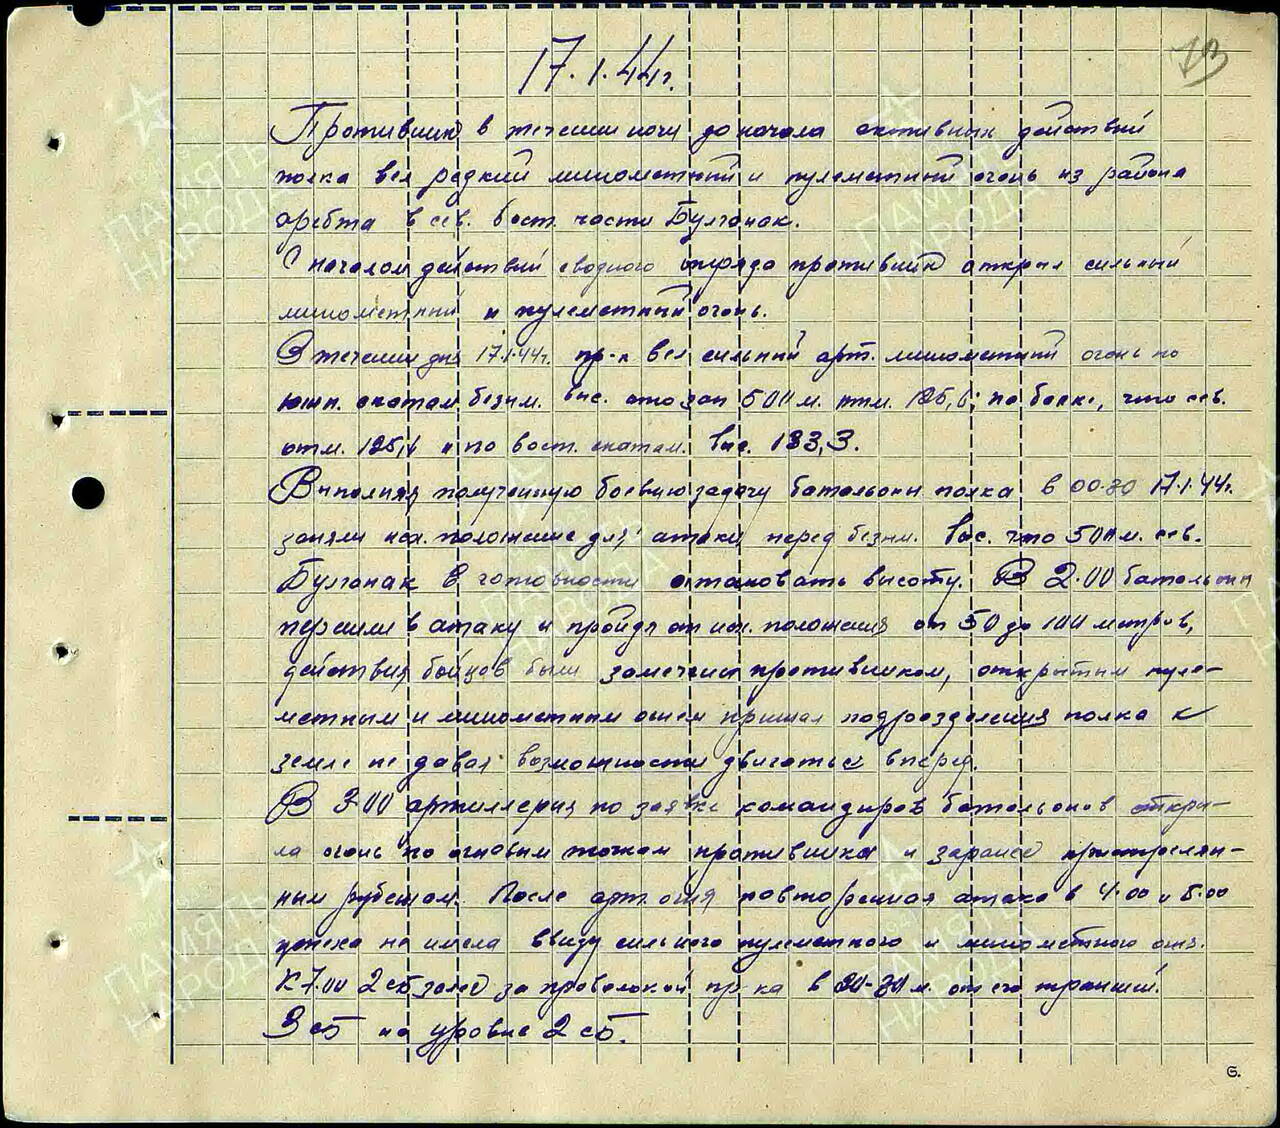 73
17.1.44г.
Противник в течении ночи до начала активных действий
полка вел редкий минометный и пулеметный огонь из района
в сев. вост. части Булганак.
С началом действий сводного отряда противник открыл сильный
минометный и пулеметный огонь.
В течении дня 17.1.44г. пр-к вел сильный арт. минометный огонь по
южн. скатам безым. выс. что зап 500 м. отм. 125,6; по балке, что сев.
отм. 125,6 и по вост. скатам. выс. 133,3.
Выполняя полученную боевую задачу батальоны полка в 00-30 17.1.44г.
заняли исх. положение для атаки перед безым. выс. что 500 м. сев.
Булганак в готовности атаковать высоту. В 2.00 батальоны
перешли в атаку и пройдя от исх. положения от 50 до 100 метров,
действия бойцов были замечены противником, открытым пуле-
метным и минометным огнем прижал подразделения полка к
земле не давая возможности двигаться вперед.
В 3-00 артиллерия по заявке командиров батальонов откры-
ла огонь по огневым точкам противника и заранее пристрелян-
ным рубежам. После арт. огня повторенная атака в 4.00 и 5.00
успеха не имела ввиду сильного пулеметного и минометного огня.
К 7.00 2 сб залег за проволокой пр-ка в 20-30 м. от его траншей.
3 сб на уровне 2 сб.
6.
ПАМЯТЬ
НАРОДА